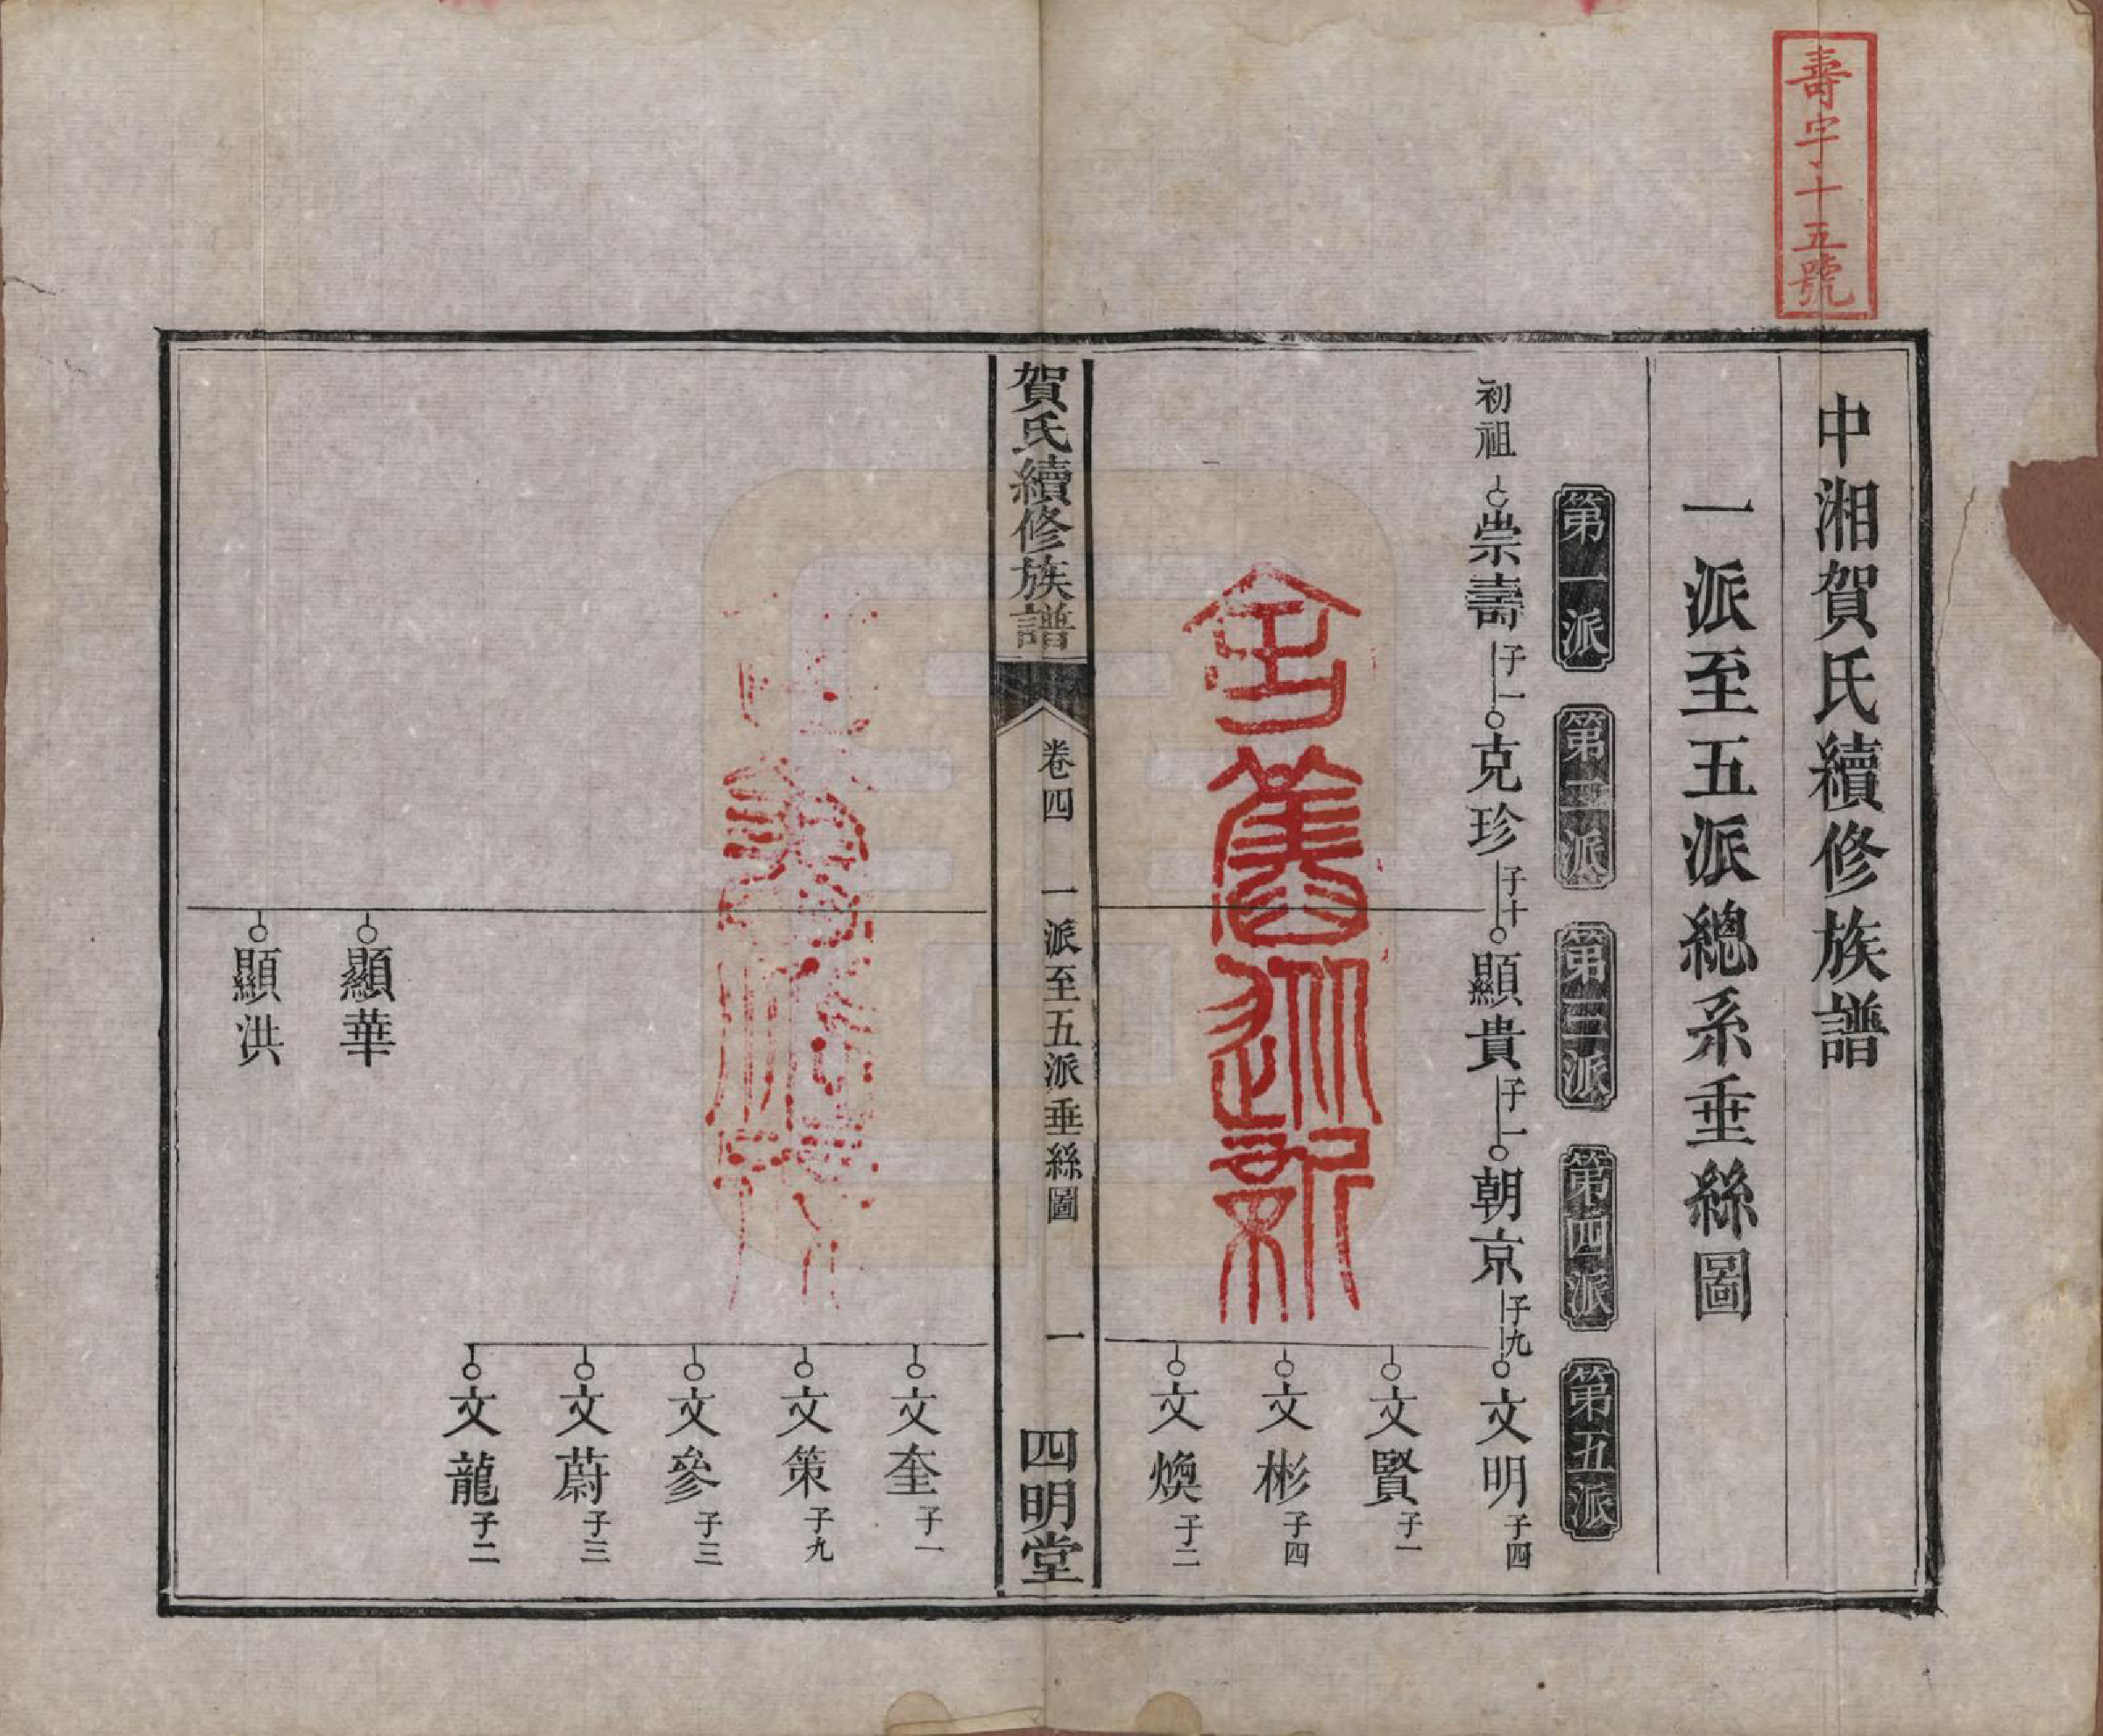 壽字十五號
中湘賀氏續修族譜
一派至五派總系垂絲圖
第一派 第二派 第三派 第四派 第五派
初祖 崇壽 子一 克珍 子十 顯貴 子一 朝京 子九 文明 子四
文賢 子一
文彬 子四
文煥 子二
賀氏續修族譜 卷四 一派至五派垂絲圖 一 四明堂
文奎 子一
文策 子九
文參 子三
文蔚 子三
文龍 子二
顯華
顯洪